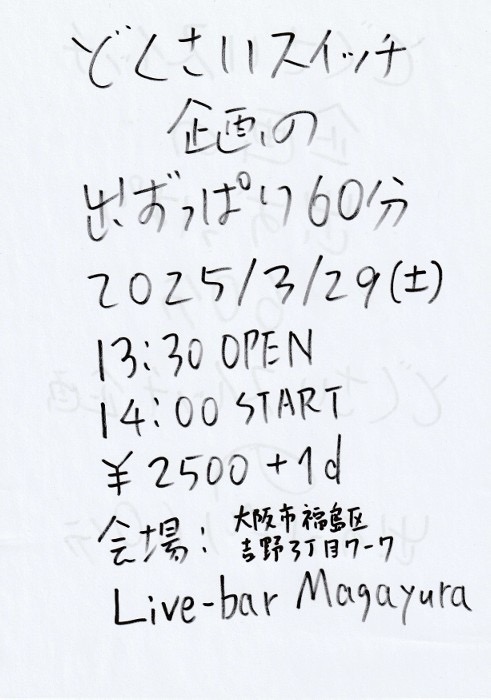 どくさいスイッチ
企画の
出ずっぱり60分
2025/3/29(土)
13:30 OPEN
14:00 START
¥2500+1d
会場: 大阪市福島区
吉野3丁目7-7
Live-bar Magayura